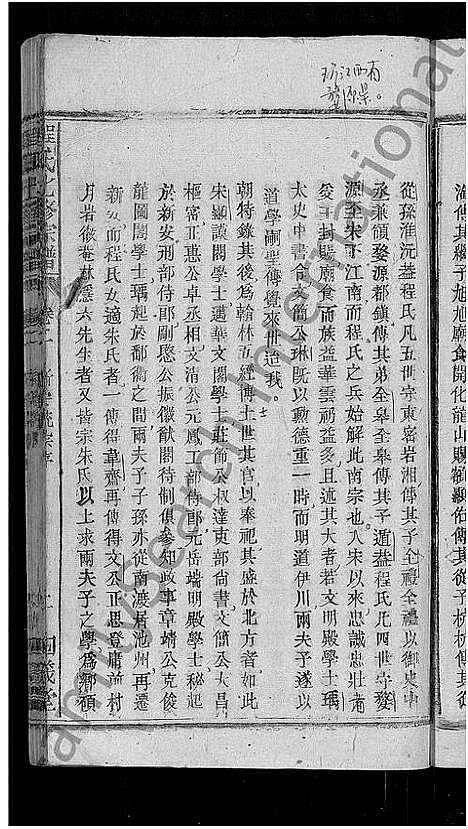 淮傳其繼子旭旭廟食開化龍山賜額顯佑傳其從子枋枋傳其從
從孫淮沅葢程氏凡五世守東密岩湘傳其子全禮全禮以御史中
丞兼領婺源都鎮傳其弟全皋全皋傳其子遁葢程氏凡四世守婺
源至宋下江南而程氏之兵始解此南宗也入宋以來忠誠忠壯者
受王封賜廟食而族益華雲礽益多且述其大者若文明殿學士瑀
太史中書舍文簡公琳既以勳德重一時而明道伊川兩夫子遂以
道學嗣聖傳覺來世迨我
朝特錄其後為翰林五經傳士世其官以奉祀其盛於北方者如此
宋顯謨閣學士邁華文閣學士莊節公叔達吏部尚書文簡公大昌
樞密正惠公卓丞相文清公元鳳工部侍郎元岳端明殿學士珌起
於新安刑部侍郎剛愍公振徽猷閣待制俱參知政事章靖公克俊
龍圖閣學士瑀起於鄱衢之間兩夫子子孫亦從南渡居池州再遷
新安而程氏女適朱氏者一傳得韋齋再傳得文公正思登庸前村
月岩徽菴林隱六先生者又皆宗朱氏以上求兩夫子之學為鄉碩
程氏
修宗譜
卷二
新安統宗序
義堂
江西有